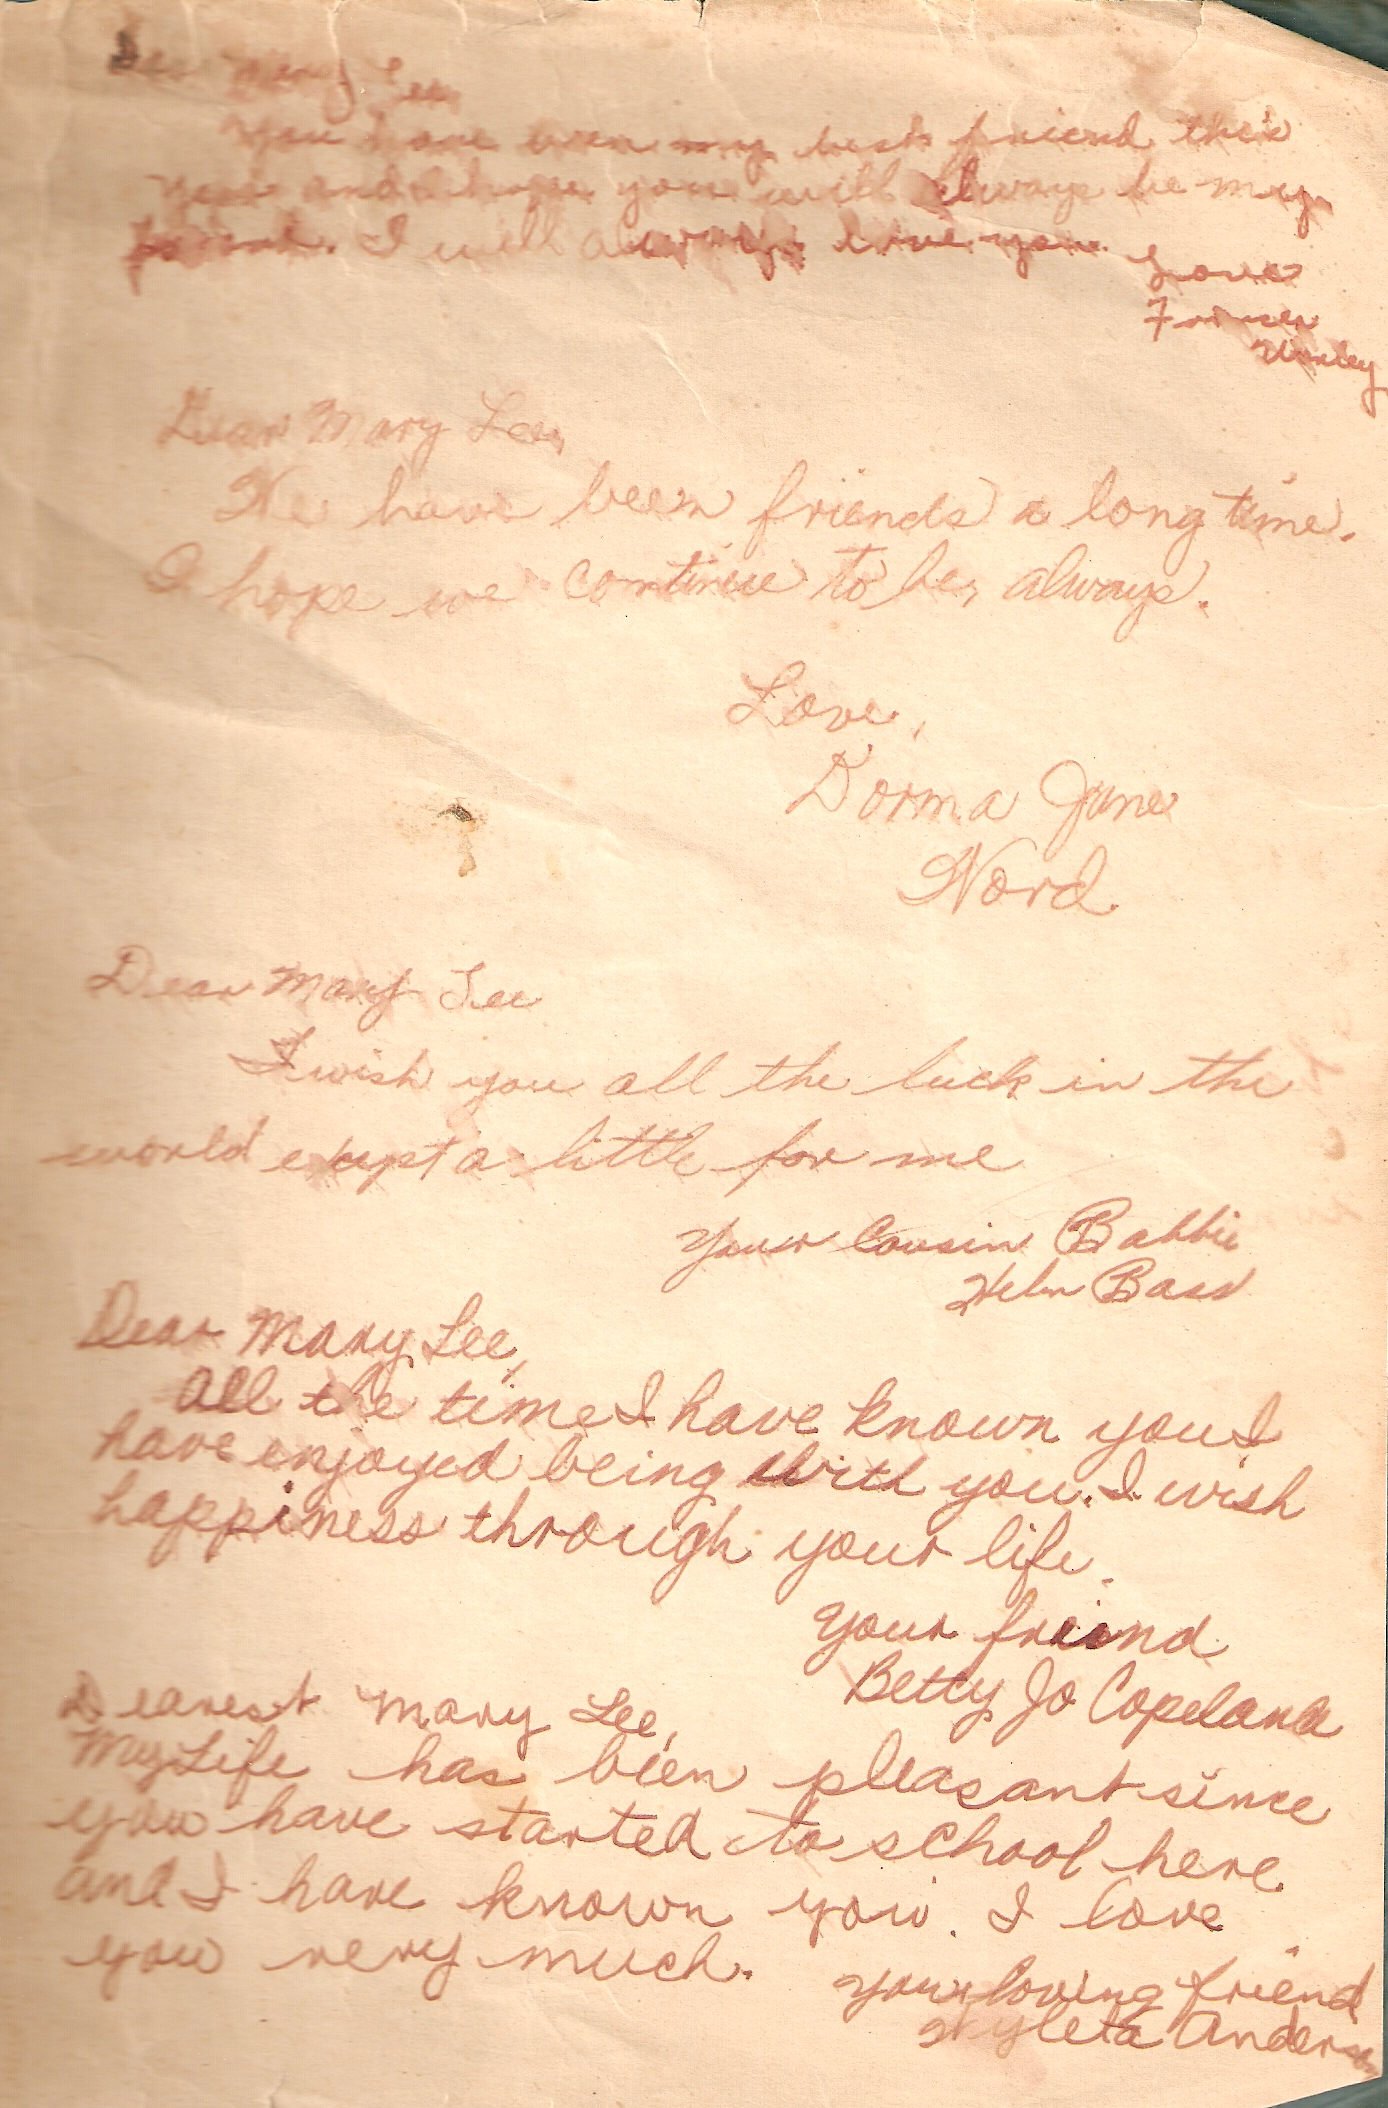 Dear Mary Lee,
You have been my best friend this
year and I hope you will always be my
friend. I will always love you.
Love
Frances
Dear Mary Lee,
We have been friends a long time.
I hope we continue to be, always.
Love,
Dorma Jane
Word
Dear Mary Lee
I wish you all the luck in the
world except a little for me
Your Cousin Bobbie
Helen Bass
Dear Mary Lee,
All the time I have known you I
have enjoyed being with you. I wish
happiness through your life.
Your freind
Betty Jo Copeland
Dearest Mary Lee,
My Life has been pleasant since
you have started to school here
and I have known you. I love
you very much.
Your loving friend
Anderson